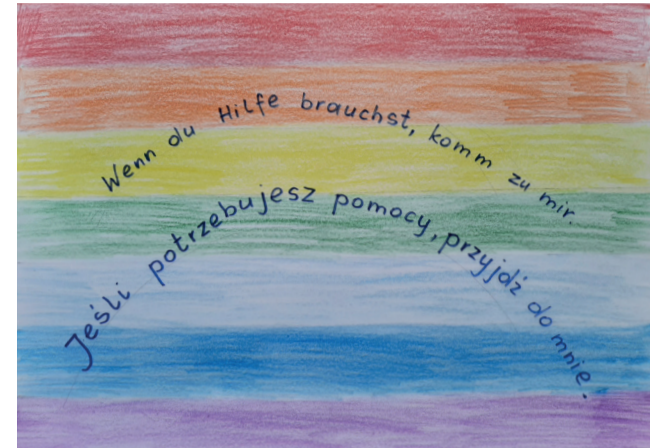 Wenn du Hilfe brauchst, komm zu mir.
Jeśli potrzebujesz pomocy, przyjdź do mnie.